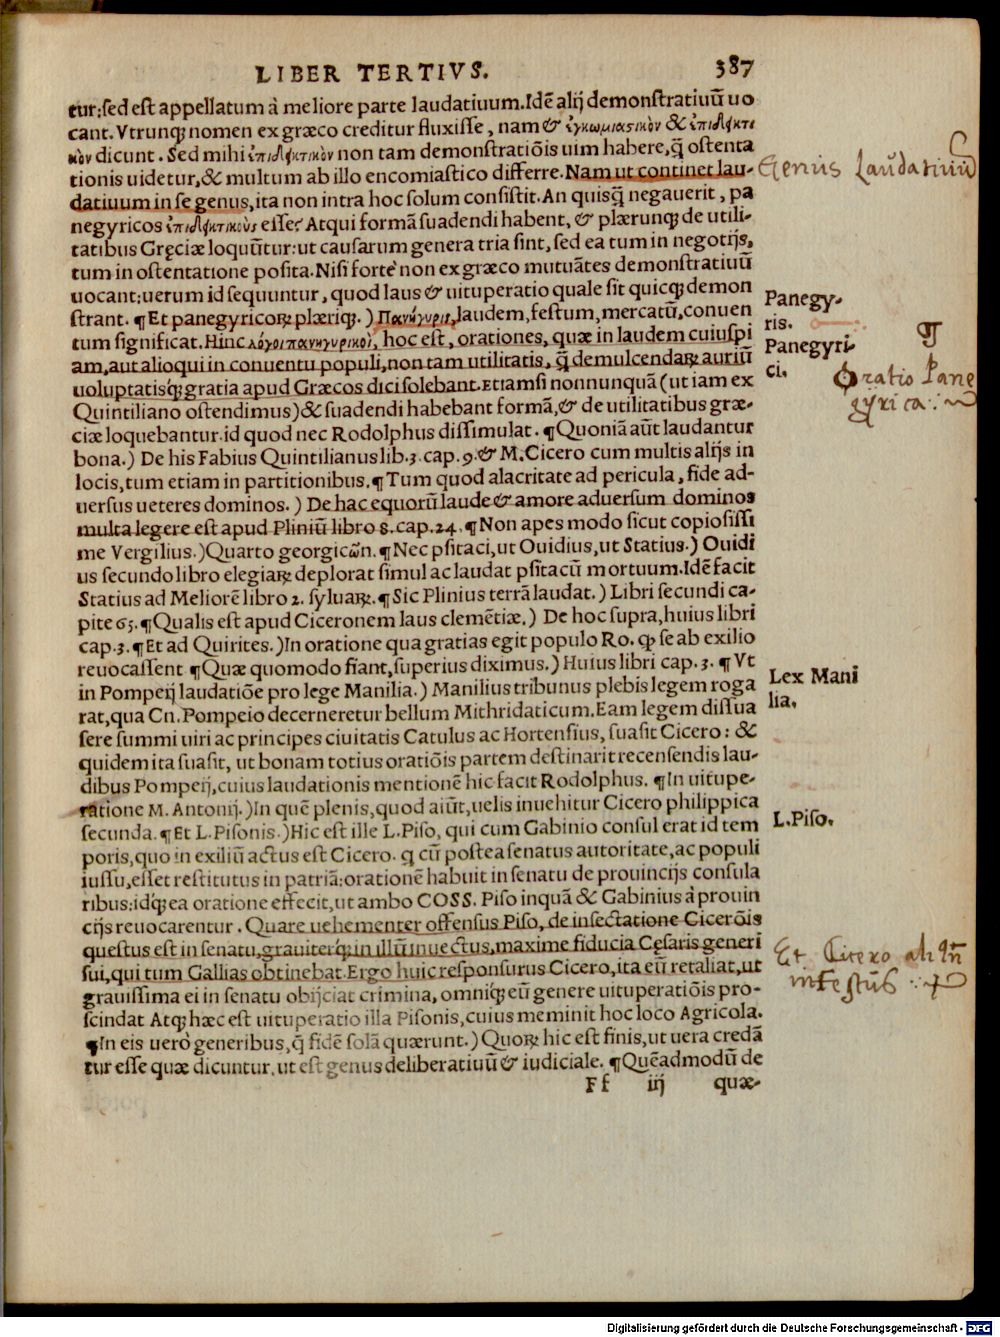 LIBER TERTIVS. 387
tur: sed est appellatum à meliore parte laudatiuum. Idē alij demonstratiuū uo
cant. Vtrunq; nomen ex græco creditur fluxisse, nam & ἐγκωμιαστικὸν & ἐπιδεικτι
κὸν dicunt. Sed mihi ἐπιδεικτικὸν non tam demonstratiōis uim habere, q̄ ostenta
tionis uidetur, & multum ab illo encomiastico differre. Nam ut continet lau-
datiuum in se genus, ita non intra hoc solum consistit. An quisq̄ negauerit, pa
negyricos ἐπιδεικτικοὺς esse? Atqui formā suadendi habent, & plærunq; de utili-
tatibus Gręciæ loquūtur: ut causarum genera tria sint, sed ea tum in negotijs,
tum in ostentatione posita. Nisi fortè non ex græco mutuātes demonstratiuū
uocant: uerum id sequuntur, quod laus & uituperatio quale sit quicq; demon
strant. ¶ Et panegyricoꝝ plæriq;.) Πανήγυρις, laudem, festum, mercatū, conuen
tum significat. Hinc λόγοι πανηγυρικοὶ, hoc est, orationes, quæ in laudem cuiuspi
am, aut alioqui in conuentu populi, non tam utilitatis, q̄ demulcendaꝝ auriū
uoluptatisq́; gratia apud Græcos dici solebant. Etiamsi nonnunquā (ut iam ex
Quintiliano ostendimus) & suadendi habebant formā, & de utilitatibus græ-
ciæ loquebantur. id quod nec Rodolphus dissimulat. ¶ Quoniā aūt laudantur
bona.) De his Fabius Quintilianus lib. 3. cap. 9. & M. Cicero cum multis alijs in
locis, tum etiam in partitionibus. ¶ Tum quod alacritate ad pericula, fide ad-
uersus ueteres dominos.) De hac equorū laude & amore aduersum dominos
multa legere est apud Pliniū libro 8. cap. 24. ¶ Non apes modo sicut copiosissi
me Vergilius.) Quarto georgicῶn. ¶ Nec psitaci, ut Ouidius, ut Statius.) Ouidi
us secundo libro elegiaꝝ deplorat simul ac laudat psitacū mortuum. Idē facit
Statius ad Meliorē libro 2. syluaꝝ. ¶ Sic Plinius terrā laudat.) Libri secundi ca-
pite 65. ¶ Qualis est apud Ciceronem laus clemētiæ.) De hoc supra, huius libri
cap. 3. ¶ Et ad Quirites.) In oratione qua gratias egit populo Ro. ꝙ se ab exilio
reuocassent ¶ Quæ quomodo fiant, superius diximus.) Huius libri cap. 3. ¶ Vt
in Pompeij laudatiōe pro lege Manilia.) Manilius tribunus plebis legem roga
rat, qua Cn. Pompeio decerneretur bellum Mithridaticum. Eam legem dissua
sere summi uiri ac principes ciuitatis Catulus ac Hortensius, suasit Cicero: &
quidem ita suasit, ut bonam totius oratiōis partem destinarit recensendis lau-
dibus Pompeij, cuius laudationis mentionē hic facit Rodolphus. ¶ In uitupe-
ratione M. Antonij.) In quē plenis, quod aiūt, uelis inuehitur Cicero philippica
secunda. ¶ Et L. Pisonis.) Hic est ille L. Piso, qui cum Gabinio consul erat id tem
poris, quo in exiliū actus est Cicero. q cū postea senatus autoritate, ac populi
iussu, esset restitutus in patriā: orationē habuit in senatu de prouincijs consula
ribus: idq́; ea oratione effecit, ut ambo COSS. Piso inquā & Gabinius à prouin
cijs reuocarentur. Quare uehementer offensus Piso, de insectatione Cicerōis
questus est in senatu, grauiterq́; in illū inuectus, maxime fiducia Cęsaris generi
sui, qui tum Gallias obtinebat. Ergo huic responsurus Cicero, ita eū retaliat, ut
grauissima ei in senatu obijciat crimina, omniq́; eū genere uituperatiōis pro-
scindat Atq; hæc est uituperatio illa Pisonis, cuius meminit hoc loco Agricola.
¶ In eis uerò generibus, q̄ fidē solā quærunt.) Quoꝝ hic est finis, ut uera credā
tur esse quæ dicuntur. ut est genus deliberatiuū & iudiciale. ¶ Quēadmodū de
Ff iij quæ-
Genus Laudatiuū
Panegy-
ris.
Panegyri-
ci.
¶
Oratio Pane
gyrica.
Lex Mani
lia.
L. Piso.
Et Cicero
infestus
Digitalisierung gefördert durch die Deutsche Forschungsgemeinschaft - DFG